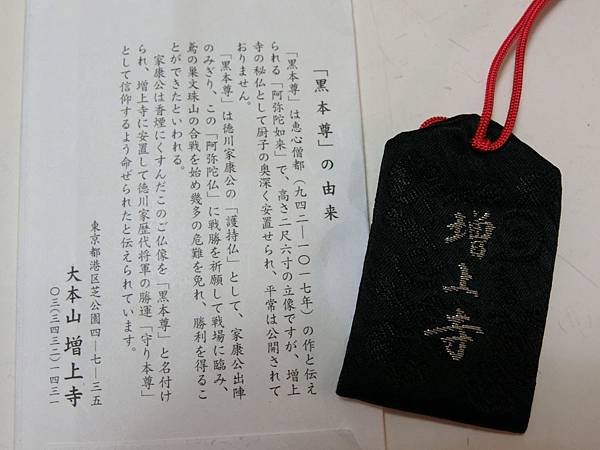 「黒本尊」の由来
「黒本尊」は恵心僧都（九四二―一〇一七年）の作と伝え
られる「阿弥陀如来」で、高さ二尺六寸の立像ですが、増上
寺の秘仏として厨子の奥深く安置せられ、平常は公開されて
おりません。
「黒本尊」は徳川家康公の「護持仏」として、家康公出陣
のみぎり、この「阿弥陀仏」に戦勝を祈願して戦場に臨み、
鳶の巣文珠山の合戦を始め幾多の危難を免れ、勝利を得るこ
とができたといわれる。
家康公は香煙にくすんだこのご仏像を「黒本尊」と名付け
られ、増上寺に安置して徳川家歴代将軍の勝運「守り本尊」
として信仰するよう命ぜられたと伝えられています。
東京都港区芝公園四―七―三五
大本山 増上寺
〇三（三四三二）一四三一
増上寺